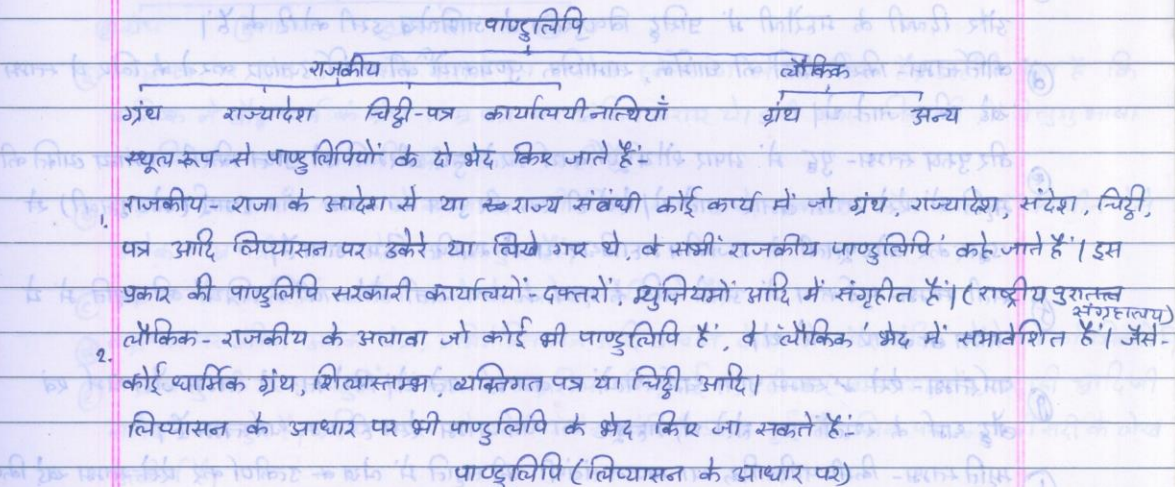 पाण्डुलिपि
राजकीय लौकिक
ग्रंथ राज्यादेश चिट्ठी-पत्र कार्यालयी नत्थियाँ ग्रंथ अन्य
स्थूल रूप से पाण्डुलिपियों के दो भेद किए जाते हैं-
1. राजकीय- राजा के आदेश से या राज्य संबंधी कोई कार्य में जो ग्रंथ, राज्यादेश, संदेश, चिट्ठी,
पत्र आदि लिप्यासन पर उकेरे या लिखे गए थे वे सभी राजकीय पाण्डुलिपि कहे जाते हैं। इस
प्रकार की पाण्डुलिपि सरकारी कार्यालयों, दफ्तरों, म्युजियमों आदि में संगृहीत हैं। (राष्ट्रीय पुरातत्त्व
संग्रहालय)
2. लौकिक- राजकीय के अलावा जो कोई भी पाण्डुलिपि हैं, वे लौकिक भेद में समावेशित हैं जैसे-
कोई धार्मिक ग्रंथ, शिलास्तम्भ, व्यक्तिगत पत्र या चिट्ठी आदि।
लिप्यासन के आधार पर भी पाण्डुलिपि के भेद किए जा सकते हैं:-
पाण्डुलिपि (लिप्यासन के आधार पर)